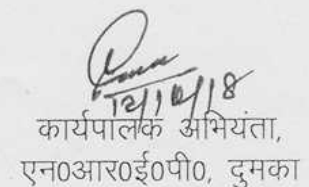 12/10/18
कार्यपालक अभियंता,
एन0आर0ई0पी0, दुमका